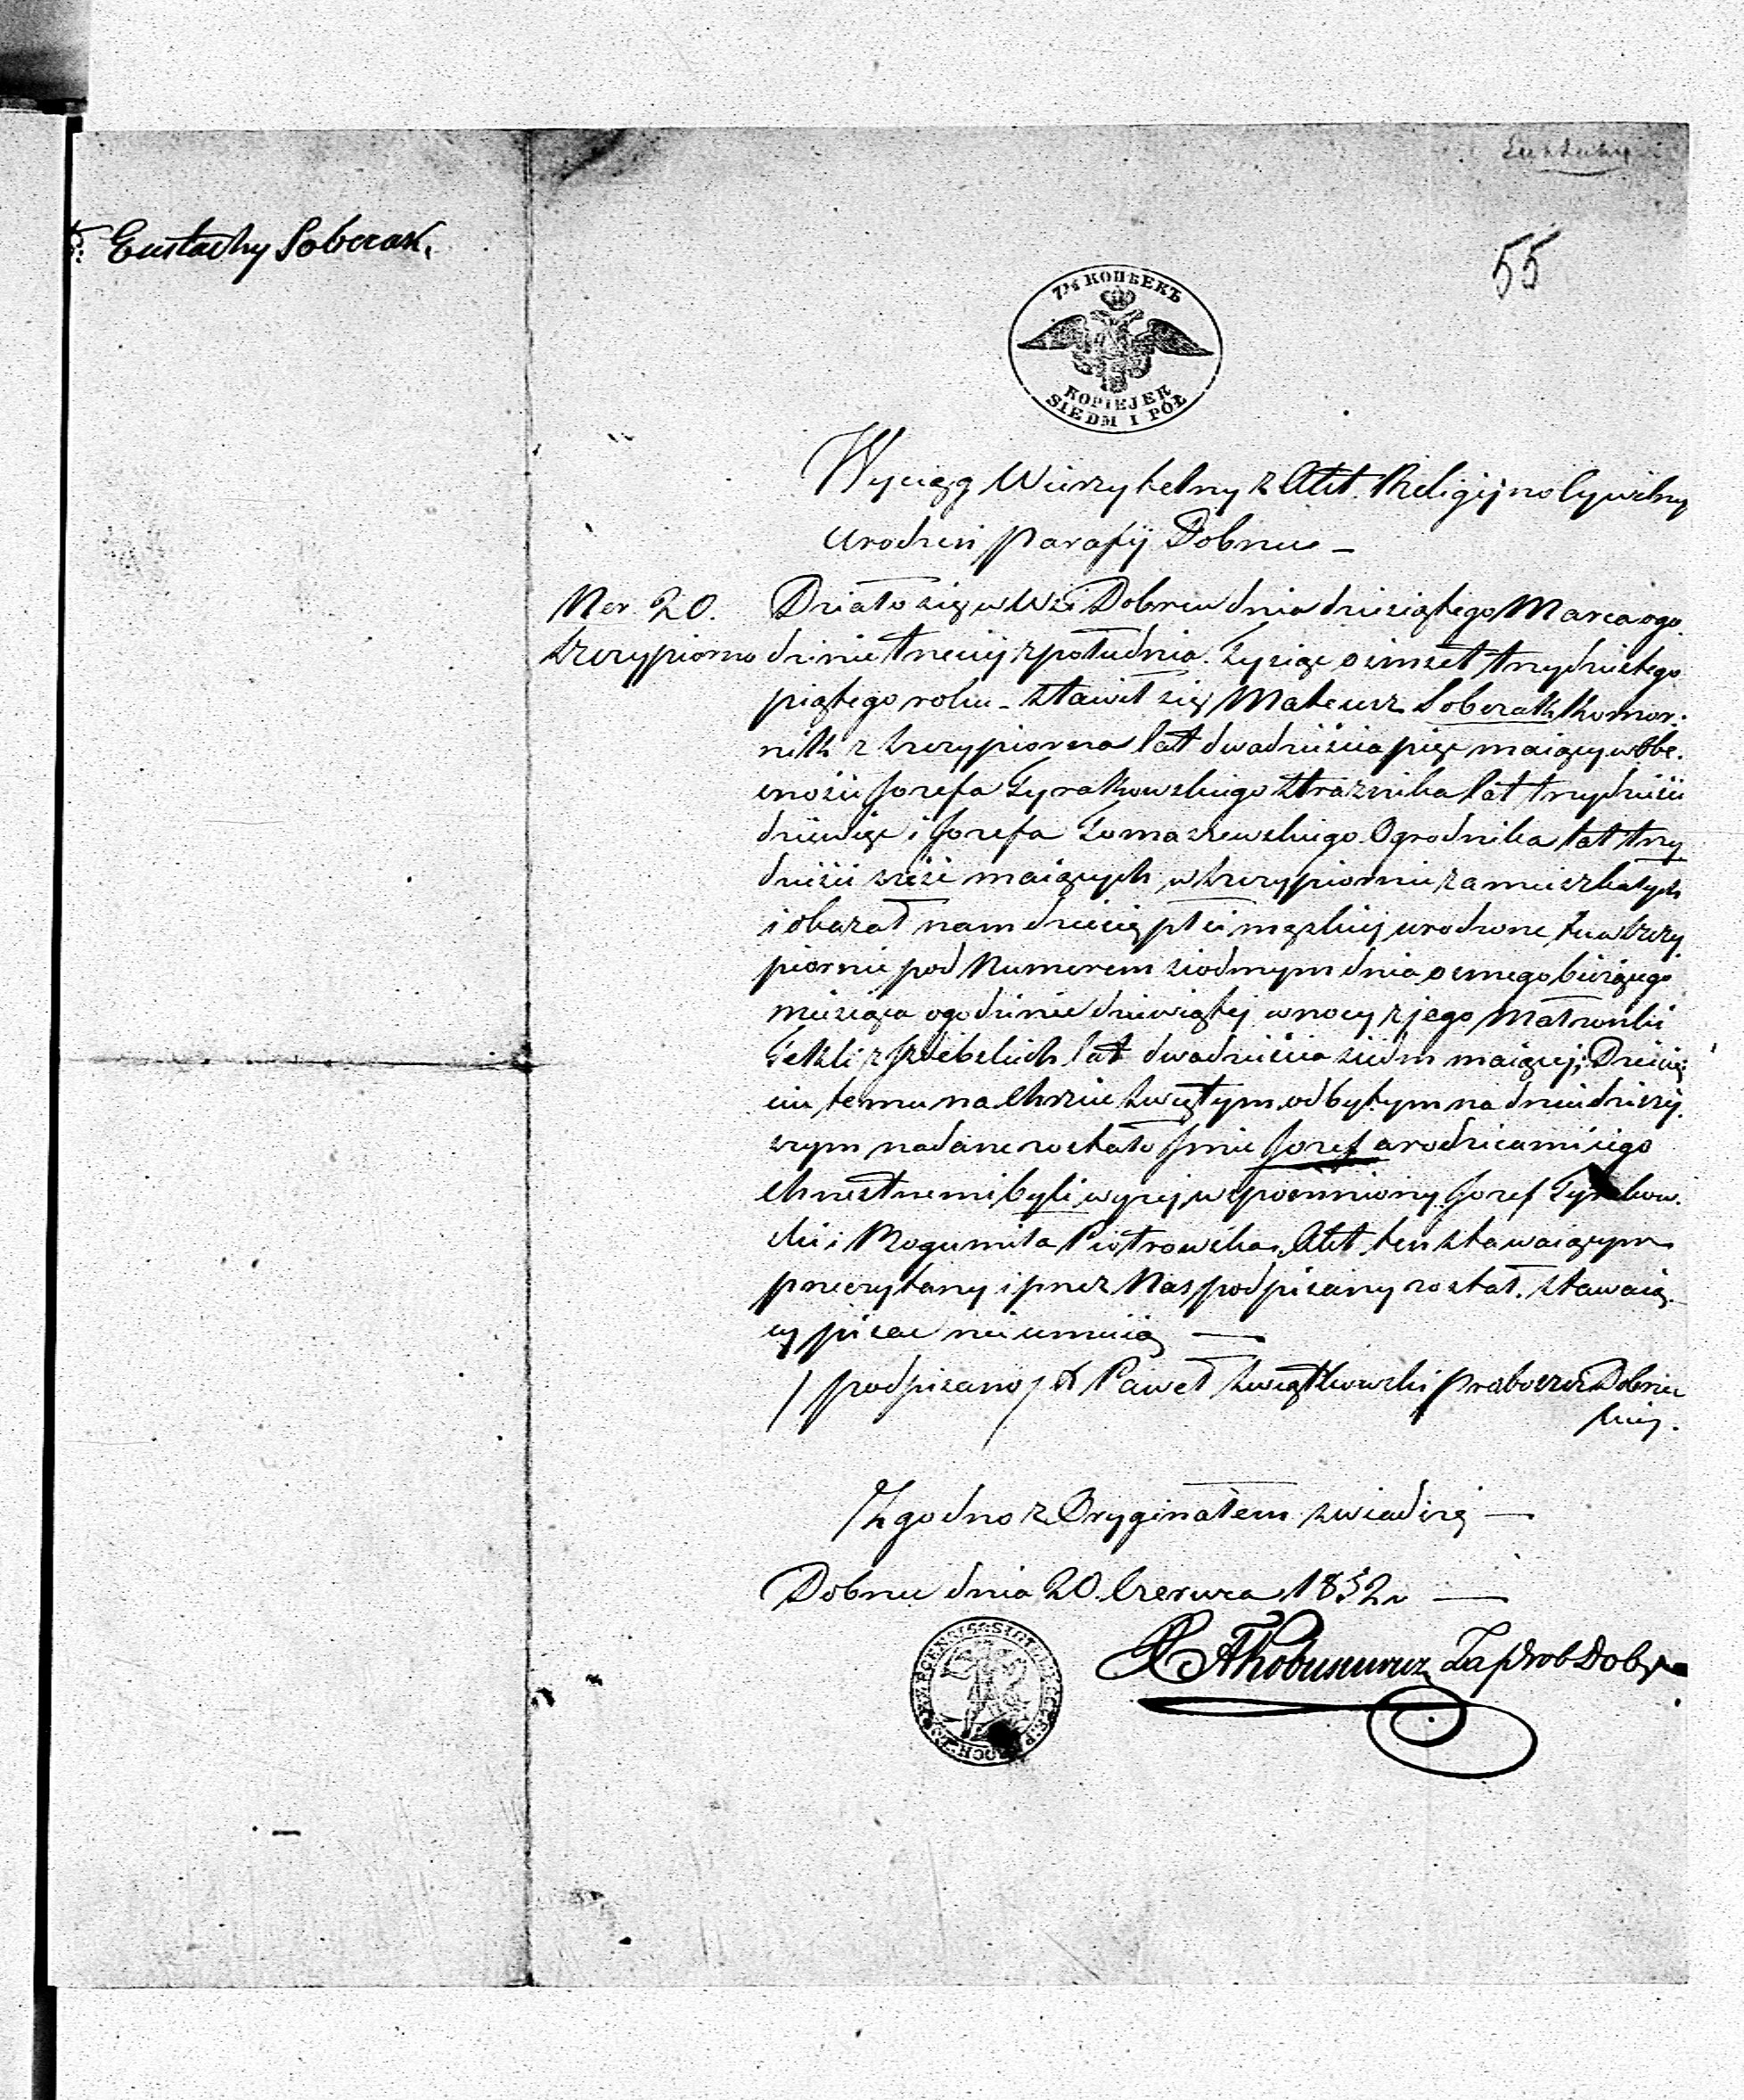 Eustachy Sobczak.
55
7½ КОПѢЕКЪ
KOPIEJEK
SIEDM I PÓŁ
Wyciąg Wierzytelny z Akt. Religijno Cywilny
Urodzeń parafij Dobrzec –
Ner. 20. Działo się w Wsi Dobrzcu dnia dziesiątego Marca ogo.
Szczypiorno dzinie trzeciej z południa. Tysiąc osmset trzydziestego
piątego roku – Stawił się Mateusz Sobczak Komor.
nik z Szczypiorna lat dwadzieścia pięć maiący, w Obe.
cności Jozefa Tyrakowskiego Strażnika lat trzydzieści
dziewięć i Jozefa Tomaszewskiego Ogrodnika lat trzy
dzieści sześć maiących, w Szczypiornie zamieszkałych
i okazał nam dziecię płci męskiej urodzone tu w Szczy
piornie pod Numerem siodmym dnia osmego bieżącego
miesiąca o godzinie dziewiątej w nocy z jego Małżonki
Tekli z lat dwadzieścia siedm maiącej; Dziecię
ciu temu na Chrzcie Swiętym odbytym na dniu dzisiej.
szym nadane zostało Jmie Jozef a rodzicami iego
Chrzestnemi byli wyżej wspomniony Jozef Tyrakow.
ski i Bogumiła Piotrowska. Akt ten stawaiącym
przeczytany i przez Nas podpisany został. Stawaią
cy pisac nieumieią —
/ podpisano / X Paweł Swiątkowski proboszcz Dobrzec
ki.
Zgodno z Oryginałem swiadczę —
Dobrzec dnia 20. Czerwca 1852 r —
Za prob Dobrz